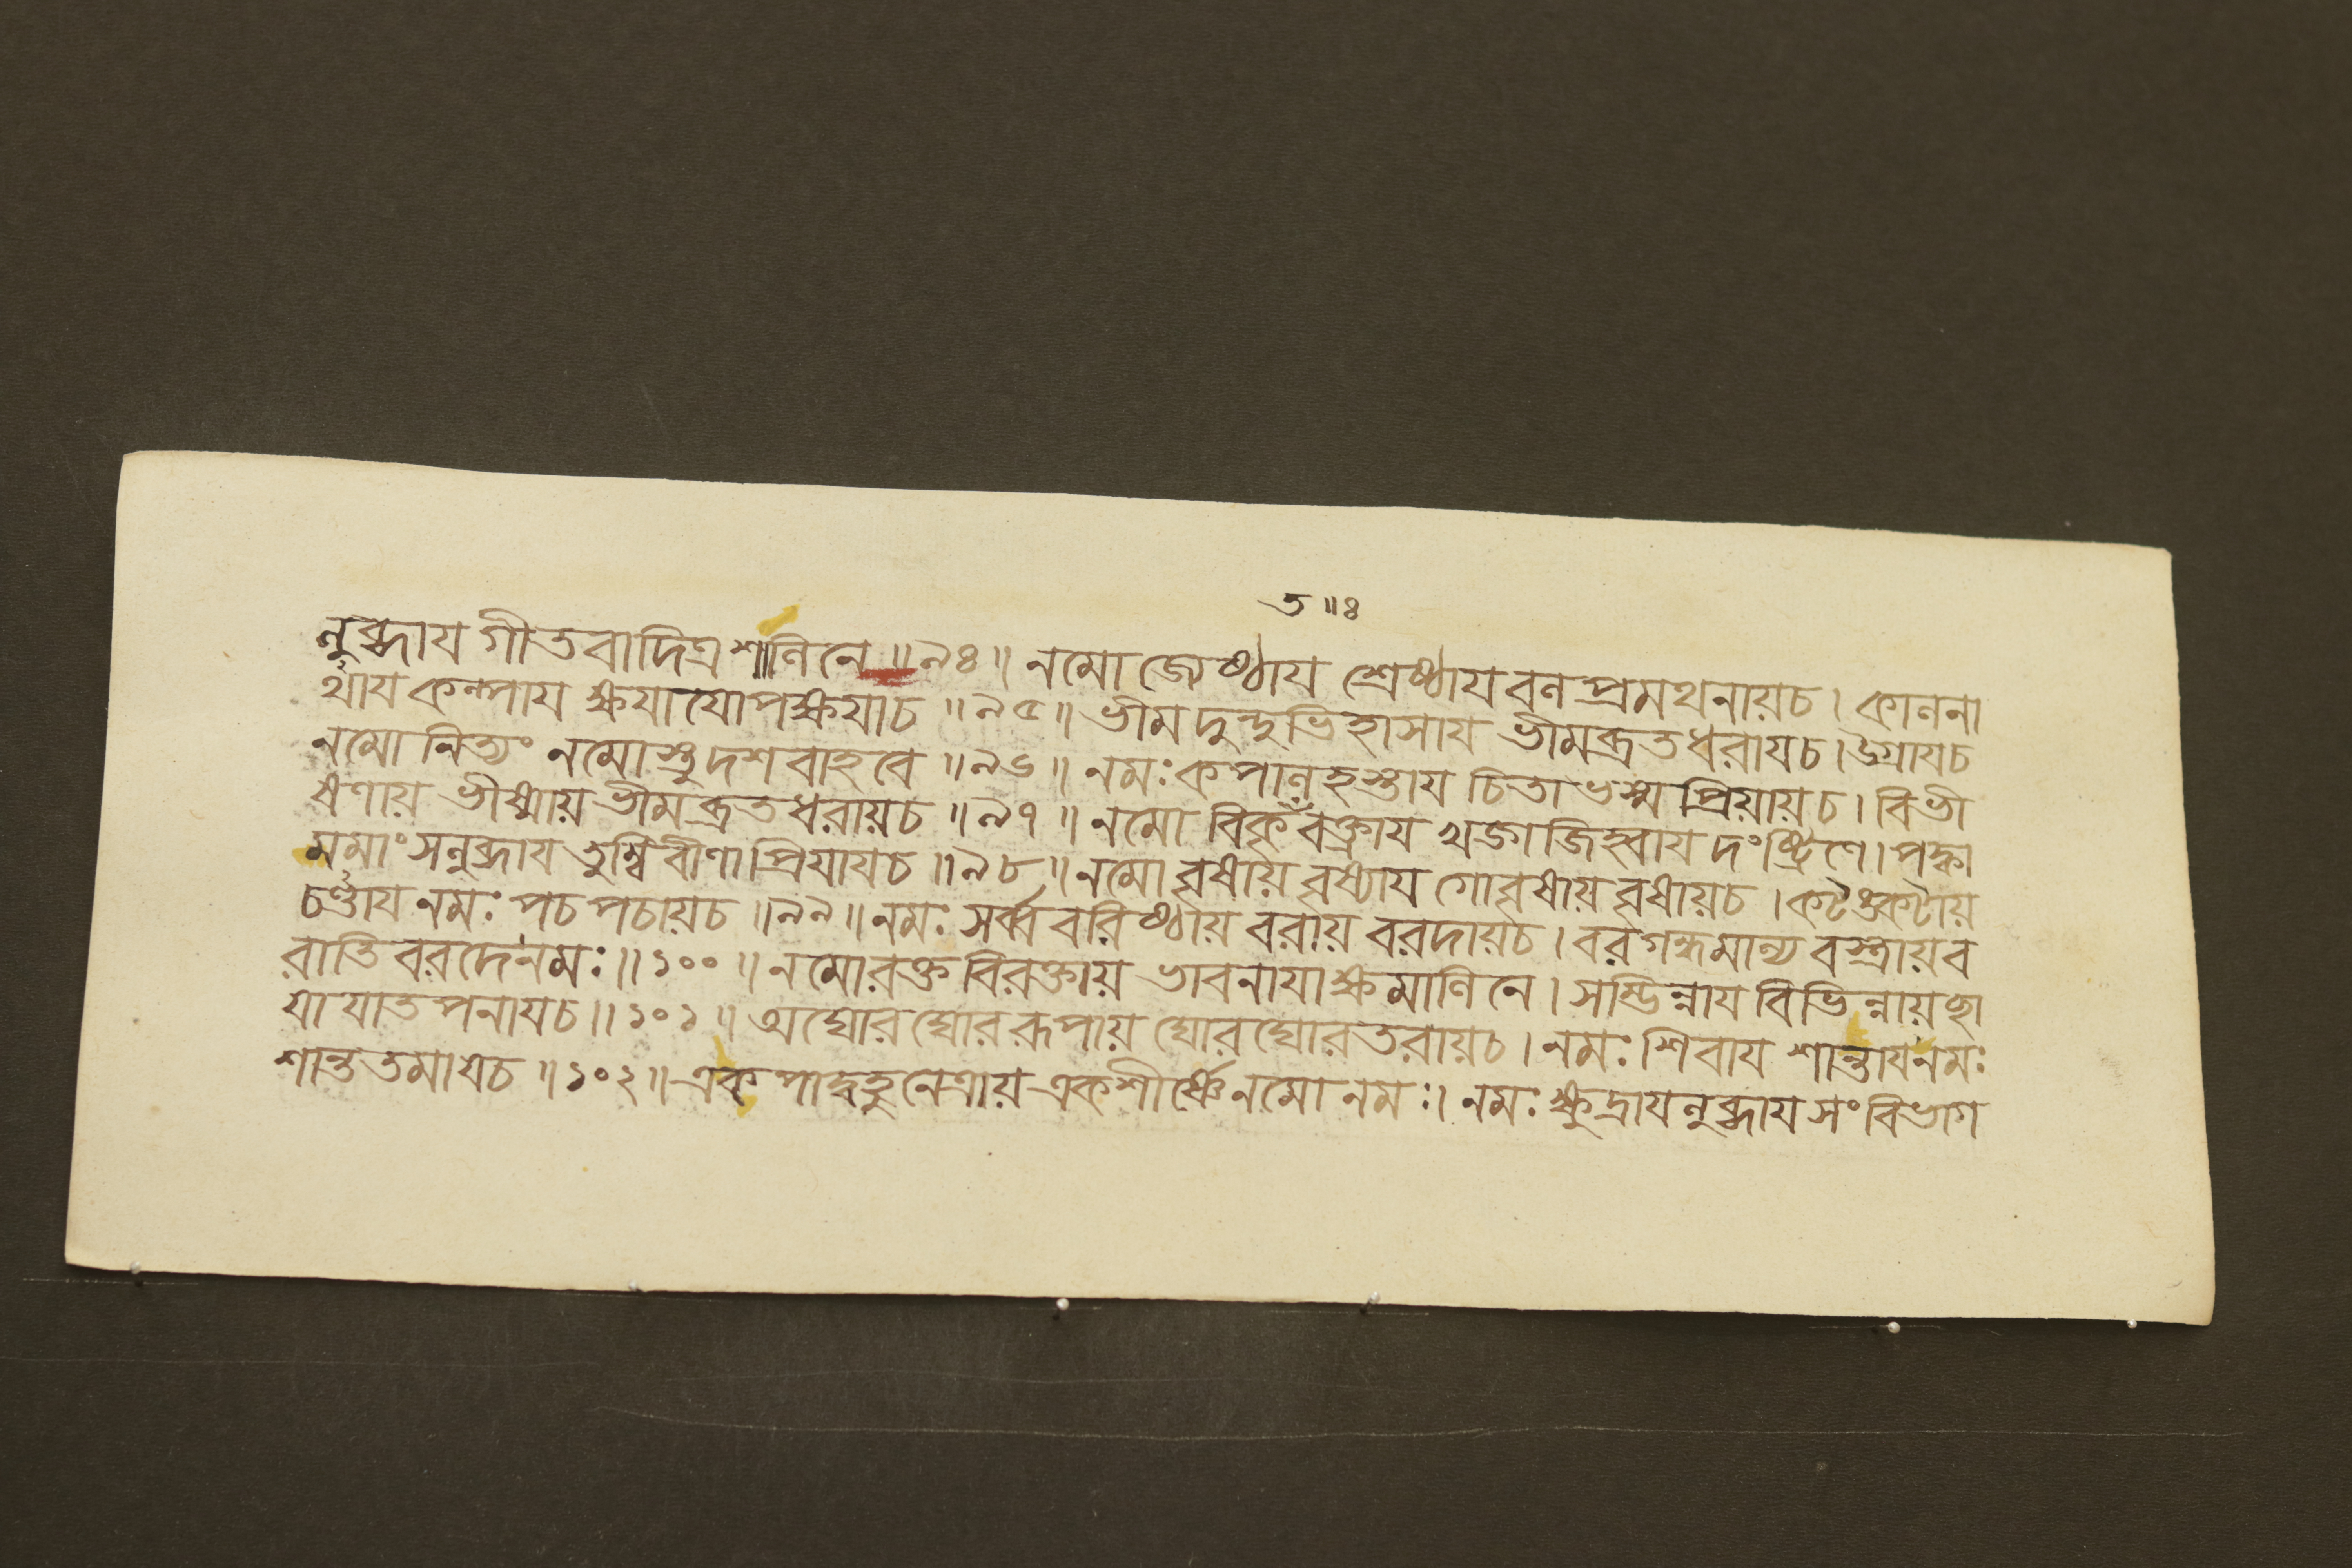 ত ॥ ঃ
নুব্ধায গীতবাদিত্রশানিনে ॥৯৪॥ নমো জ্যেষ্ঠায শ্রেষ্ঠায বন প্রমথনায়চ। কাননা
র্থায কন্পায ক্ষযাযোপক্ষযাচ ॥৯৫॥ ভীমদুন্দুভিহাসায ভীমব্রতধরাযচ। উগ্রাযচ
নমো নিত্যং নমোস্তুদশবাহবে ॥৯৬॥ নমঃ কপানহস্তায চিতাভস্ম প্রিয়ায়চ। বিভী
ষণায় ভীষ্মায় ভীমব্রতধরায়চ ॥৯৭॥ নমো বিকৃঁবক্ত্রায খড়্গজিহ্বায দংষ্ট্রিণে। পক্বা
মমাংসনুব্ধায তুম্বিবীণাপ্রিযাযচ ॥৯৮॥ নমো বৃষায় বৃষ্যায গোবৃষায় বৃষায়চ। কটঙ্কটায়
চণ্ডায নমঃ পচপচায়চ ॥৯৯॥ নমঃ সর্ব্ববরিষ্ঠায় বরায় বরদায়চ। বরগন্ধমান্যবস্ত্রায়ব
রাতিবরদেনমঃ ॥১০০॥ নমোরক্তবিরক্তায় ভাবনাযাক্ষমানিনে। সম্ভিন্নায বিভিন্নায়ছা
যাযাতপনাযচ ॥১০১॥ অঘোরঘোররূপায় ঘোরঘোরতরায়চ। নমঃ শিবায শান্তাযনমঃ
শান্ততমাযচ ॥১০২॥ একপাদ্বহুনেত্রায় একশীর্ষ্ণেনমো নমঃ। নমঃ ক্ষুদ্রাযনুব্ধায সংবিভাগ